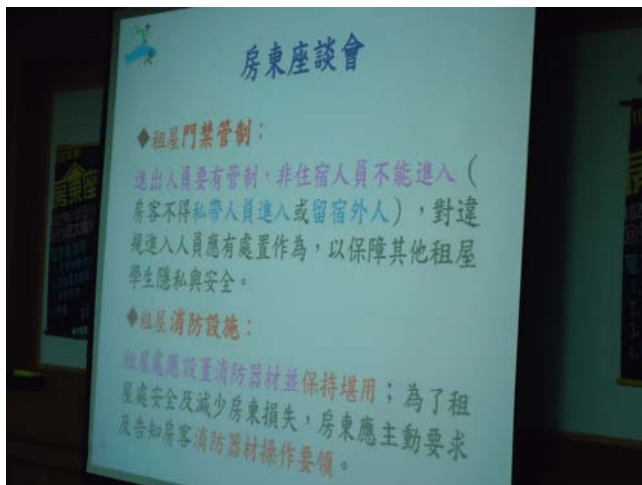 房東座談會
◆租屋門禁管制：
進出人員要有管制，非住宿人員不能進入（
房客不得私帶人員進入或留宿外人），對違
規進入人員應有處置作為，以保障其他租屋
學生隱私與安全。
◆租屋消防設施：
租屋處應設置消防器材並保持堪用；為了租
屋處安全及減少房東損失，房東應主動要求
及告知房客消防器材操作要領。
房東座